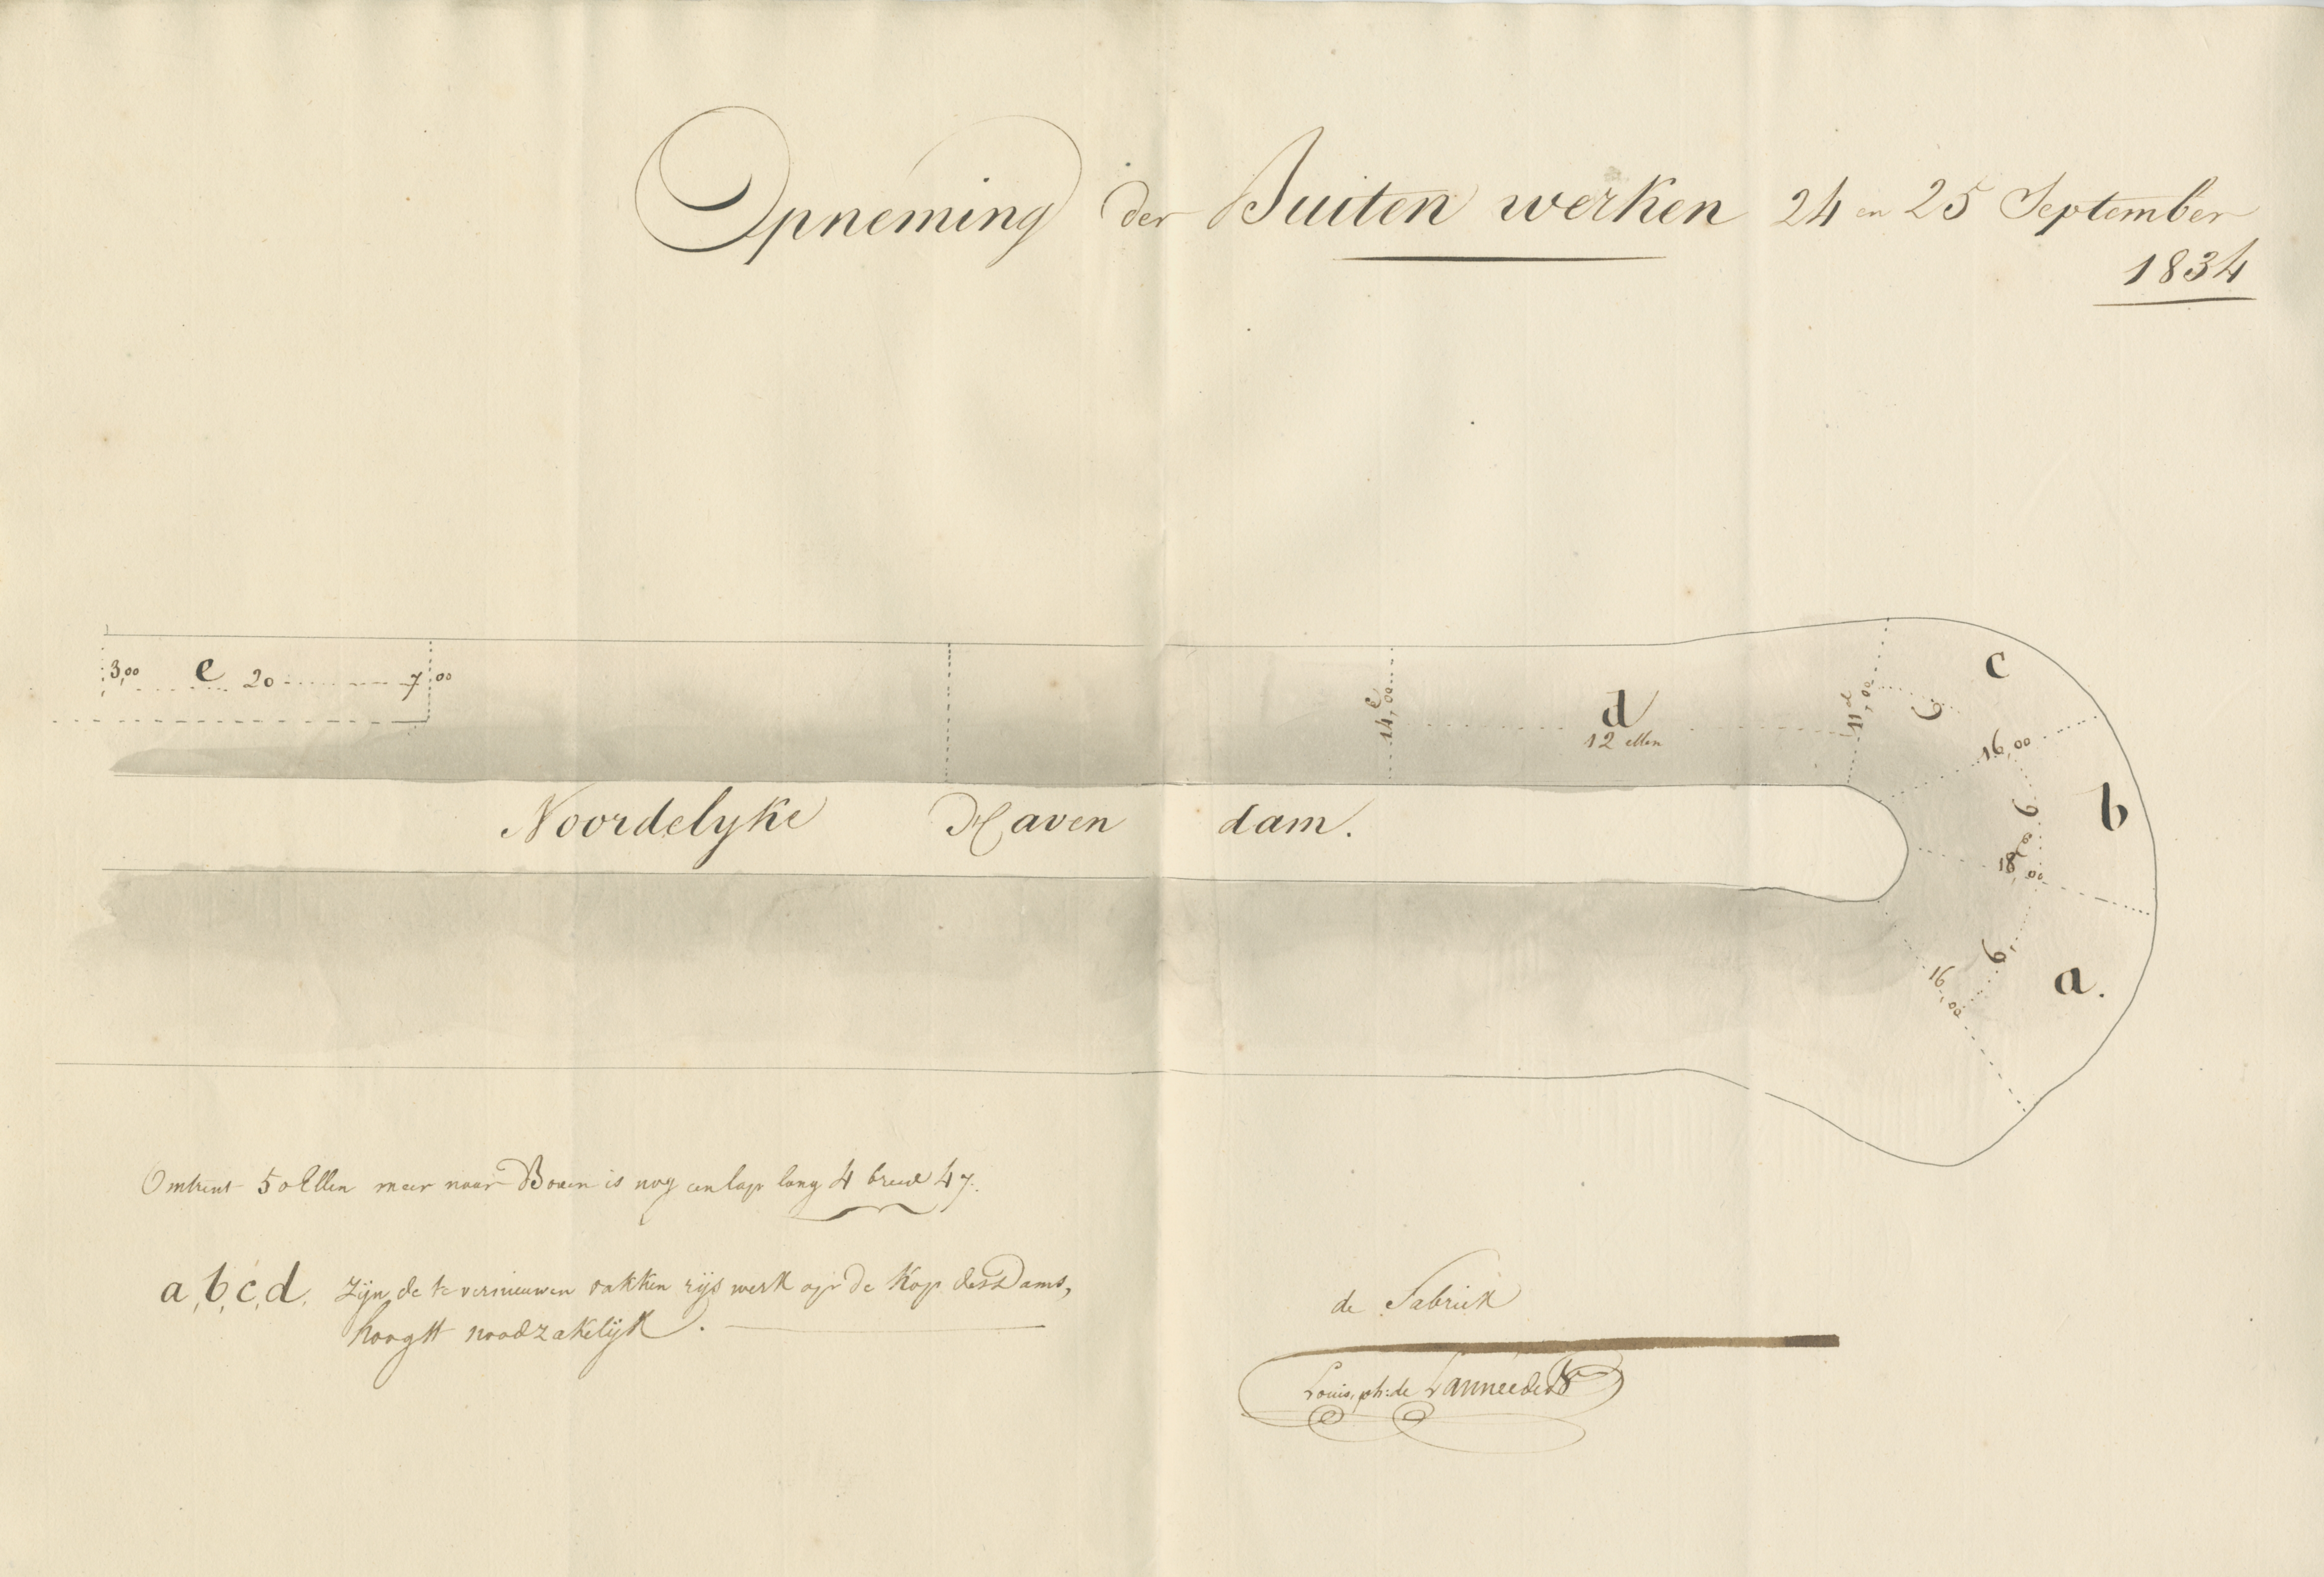 Opneming der Buiten werken 24 en 25 September
1834
3,00 e 20 7,00
14,00
d
12 ellen
11,00
6
c
16,00
b
6
18,00
6
a.
16,00
Noordelyke Haven dam.
Omtrent 50 Ellen meer naar Boven is nog een lap lang 4 breed 4
a, b, c, d. Zijn, de te vernieuwen vakken rijs werk op de Kop des Dams,
hoogst noodzakelijk.
de Fabriek
Louis, ph: de